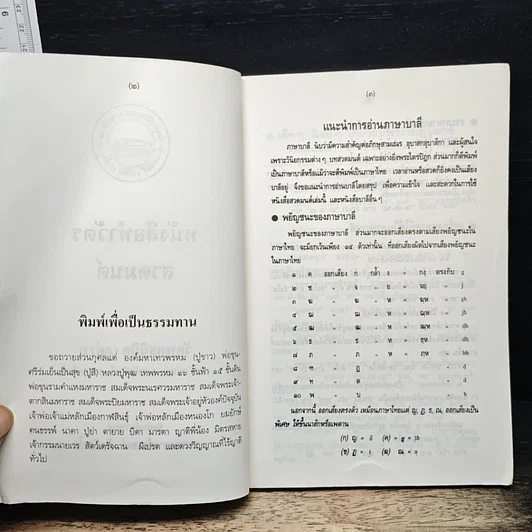 (๒)
พิมพ์เพื่อเป็นธรรมทาน
ขอถวายส่วนกุศลแด่ องค์มหาเทวพรหม (ปู่ขาว) พ่อขุน-
ศรีร่มเย็นเป็นสุข (ปู่สี) หลวงปู่พุฒ เทพพรหม ๑๖ ชั้นฟ้า ๑๕ ชั้นดิน
พ่อขุนรามคำแหงมหาราช สมเด็จพระนเรศวรมหาราช สมเด็จพระเจ้า-
ตากสินมหาราช สมเด็จพระปิยมหาราช สมเด็จพระเจ้าอยู่หัวองค์ปัจจุบัน
เจ้าพ่อเจ้าแม่หลักเมืองกาฬสินธุ์ เจ้าพ่อหลักเมืองหนองโก ยมยักษ์
คนธรรพ์ นาคา ปู่ย่า ตายาย บิดา มารดา ญาติพี่น้อง มิตรสหาย
เจ้ากรรมนายเวร สัตว์เดรัจฉาน ผีเปรต และดวงวิญญาณที่ไร้ญาติ
ทั่วไป
(๓)
แนะนำการอ่านภาษาบาลี
ภาษาบาลี นับว่ามีความสำคัญต่อภิกษุสามเณร อุบาสกอุบาสิกา และผู้สนใจ
เพราะวินัยกรรมต่าง ๆ บทสวดมนต์ เฉพาะอย่างยิ่งพระไตรปิฎก ส่วนมากก็ตีพิมพ์
เป็นภาษาบาลีหรือแม้ว่าจะตีพิมพ์เป็นภาษาไทย เวลาอ่านหรือสวดก็ยังคงเป็นเสียง
บาลีอยู่ จึงขอแนะนำการอ่านบาลีโดยสรุป เพื่อความเข้าใจ และสะดวกในการใช้
หนังสือสวดมนต์เล่มนี้ และหนังสือบาลีอื่น ๆ
● พยัญชนะของภาษาบาลี
พยัญชนะของภาษาบาลี ส่วนมากจะออกเสียงตรงตามเสียงพยัญชนะใน
ภาษาไทย จะมียกเว้นเพียง ๑๕ ตัวเท่านั้น ที่ออกเสียงผิดไปจากเสียงพยัญชนะ
ในภาษาไทย
๑ ค ออกเสียง ก กล้ำ ง = กฺง ตรงกับ g
๒ ช " จ " ย = จฺย " j
๓ ฆ " ฆ " ห = ฆฺห " gh
๔ ฌ " ฌ " ห = ฌฺห "
๕ ฒ " ฒ " ห = ฒฺห "
๖ ธ " ธ " ห = ธฺห "
๗ ภ " ภ " ห = ภฺห " bh
๘ ฑ " ด " "
๙ ท " ด " d
๑๐ พ " บ " b
นอกจากนี้ ออกเสียงตรงตัว เหมือนภาษาไทยแต่ ญ, ฏ, ธ, ณ, ออกเสียงเป็น
พิเศษ ให้ขึ้นนาสิกหรือเพดาน